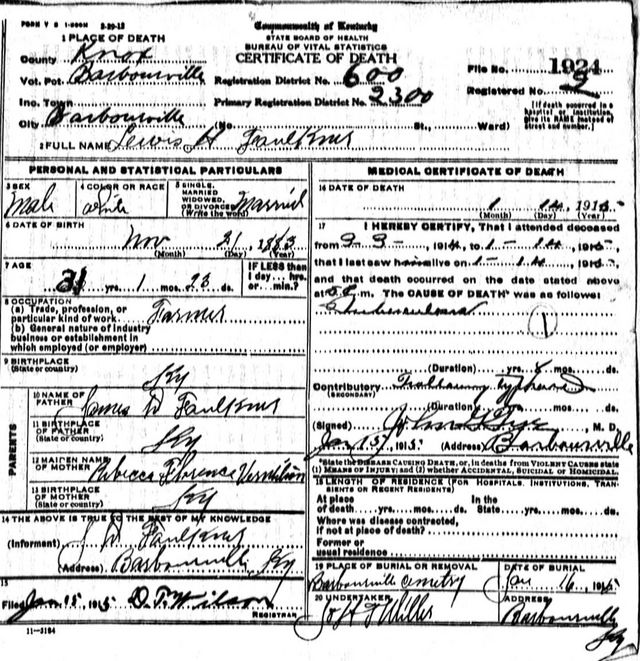 FORM V S 1-500M 3-20-13
Commonwealth of Kentucky
STATE BOARD OF HEALTH
BUREAU OF VITAL STATISTICS
CERTIFICATE OF DEATH
1 PLACE OF DEATH
County Knox
Vot. Pct. Barbourville
Inc. Town
City Barbourville (No. St., Ward)
Registration District No. 600
Primary Registration District No. 2300
File No. 1924
Registered No. 2
[If death occurred in a hospital or institution, give its NAME instead of street and number.]
2 FULL NAME Lewis H Faulkner
PERSONAL AND STATISTICAL PARTICULARS
3 SEX Male
4 COLOR OR RACE White
5 SINGLE, MARRIED WIDOWED, OR DIVORCED (Write the word) Married
6 DATE OF BIRTH
Nov 21, 1883
(Month) (Day) (Year)
7 AGE
31 yrs. 1 mos. 23 ds.
IF LESS than 1 day ... hrs. or ... min.?
8 OCCUPATION
(a) Trade, profession, or particular kind of work Farmer
(b) General nature of industry business or establishment in which employed (or employer)
9 BIRTHPLACE
(State or country) Ky
PARENTS
10 NAME OF FATHER James D Faulkner
11 BIRTHPLACE OF FATHER (State or country) Ky
12 MAIDEN NAME OF MOTHER Rebecca Florence Vermilion
13 BIRTHPLACE OF MOTHER (State or country) Ky
14 THE ABOVE IS TRUE TO THE BEST OF MY KNOWLEDGE
(Informant) J D Faulkner
(Address) Barbourville, Ky
15
Filed Jan 15, 1915 D. T. Wilson
REGISTRAR
11-3184
MEDICAL CERTIFICATE OF DEATH
16 DATE OF DEATH
1 14, 1915
(Month) (Day) (Year)
17 I HEREBY CERTIFY, That I attended deceased
from 9-3-, 1914, to 1-14, 1915,
that I last saw him alive on 1-14, 1915,
and that death occurred on the date stated above
at m. The CAUSE OF DEATH* was as follows:
Tuberculosis
1
(Duration) yrs. mos. ds.
Contributory Typhoid
(SECONDARY)
(Duration) yrs. mos. ds.
(Signed) M. D.
Jan 15, 1915 (Address) Barbourville
*State the DISEASE CAUSING DEATH, or, in deaths from VIOLENT CAUSES state
(1) MEANS OF INJURY; and (2) whether ACCIDENTAL, SUICIDAL or HOMICIDAL.
18 LENGTH OF RESIDENCE (FOR HOSPITALS, INSTITUTIONS, TRANSIENTS OR RECENT RESIDENTS)
At place of death yrs. mos. ds. In the State yrs. mos. ds.
Where was disease contracted, if not at place of death?
Former or usual residence
19 PLACE OF BURIAL OR REMOVAL
Barbourville Cemetry
DATE OF BURIAL
Jan 16, 1915
20 UNDERTAKER
ADDRESS
Barbourville
Ky